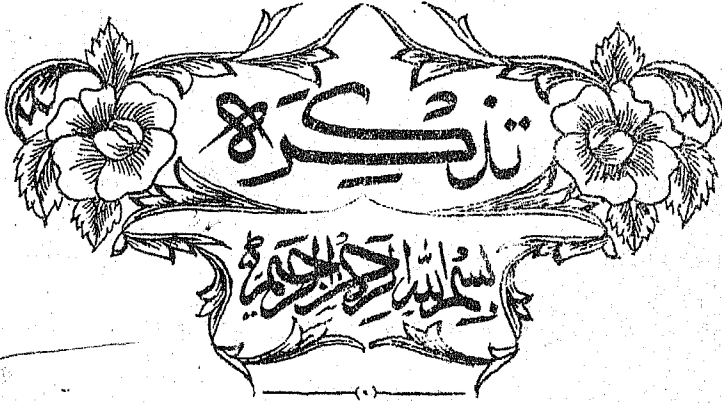 تذکِرَہ
بِسْمِ اللّٰهِ الرَّحْمٰنِ الرَّحِيْمِ